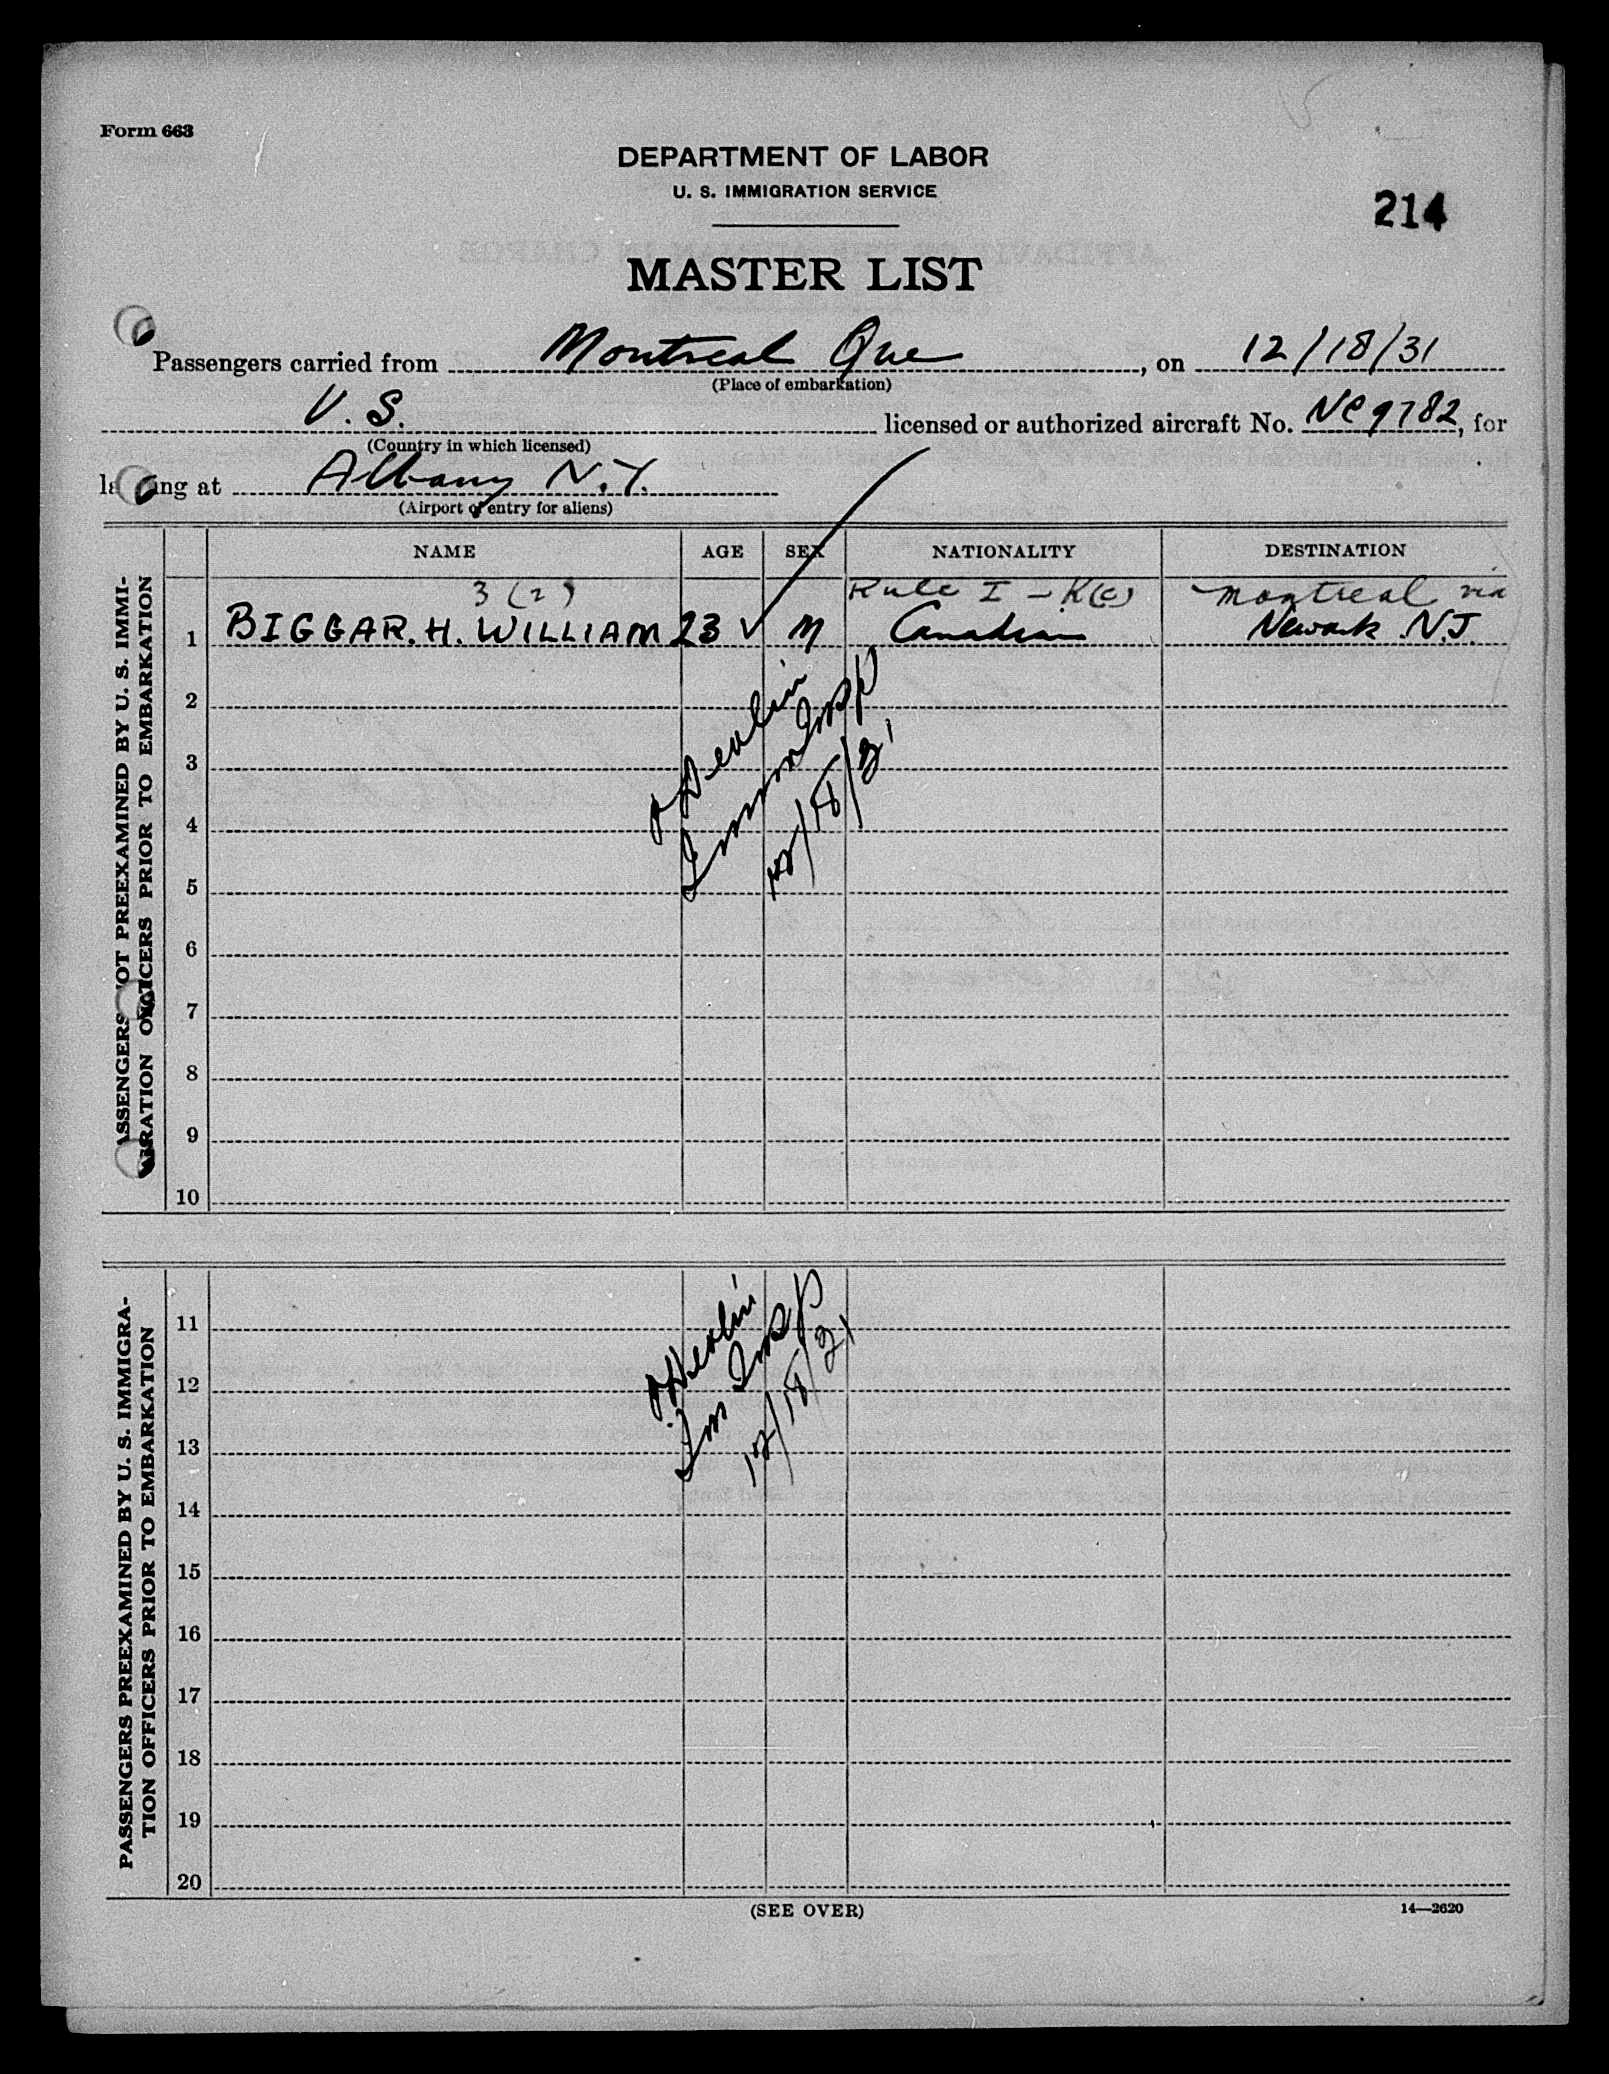 Form 663
DEPARTMENT OF LABOR
U. S. IMMIGRATION SERVICE
214
MASTER LIST
Passengers carried from Montreal Que, on 12/18/31
(Place of embarkation)
U. S. licensed or authorized aircraft No. NC9782, for
(Country in which licensed)
landing at Albany N.Y.
(Airport of entry for aliens)
NAME AGE SEX NATIONALITY DESTINATION
3 (2) Rule I - K(c) Montreal via
1 BIGGAR. H. WILLIAM 23 M Canadian Newark N.J.
2
3
4
5
6
7
8
9
10
PASSENGERS NOT PREEXAMINED BY U. S. IMMI-
GRATION OFFICERS PRIOR TO EMBARKATION
Devlin
Immn Insp
12/18/31
11
12
13
14
15
16
17
18
19
20
PASSENGERS PREEXAMINED BY U. S. IMMIGRA-
TION OFFICERS PRIOR TO EMBARKATION
Devlin
Im Insp
12/18/31
(SEE OVER)
14—2620